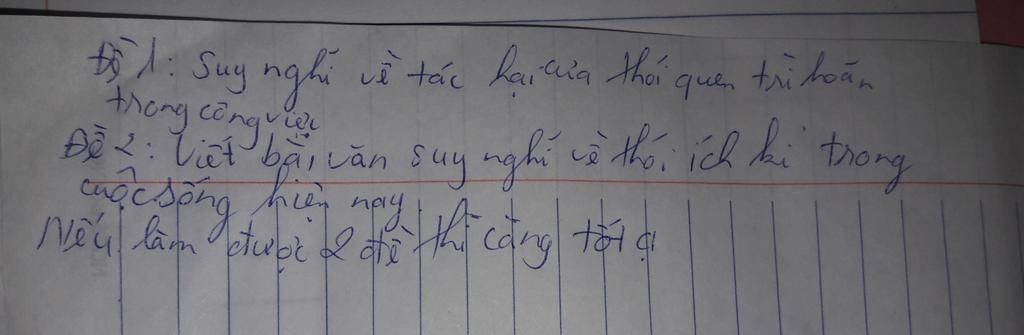 Đề 1: Suy nghĩ về tác hại của thói quen trì hoãn
trong công việc
Đề 2: Viết bài văn suy nghĩ về thói ích kỉ trong
cuộc sống hiện nay
Nếu làm được 2 đề thì càng tốt ạ